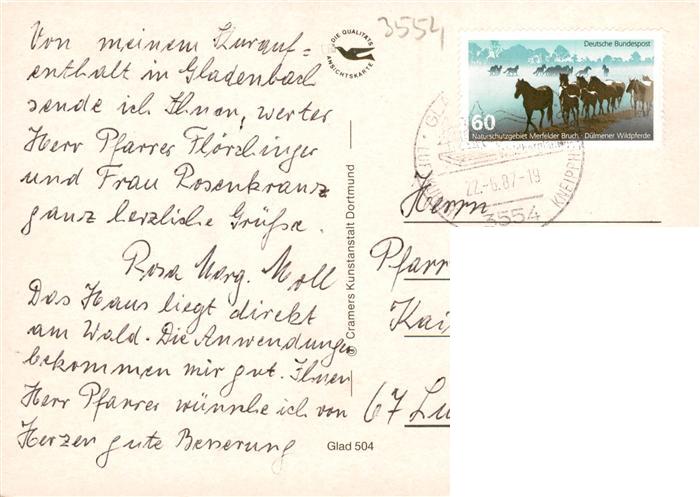 3554
Von meinem Kurauf=
enthalt in Gladenbach
sende ich Ihnen, werter
Herr Pfarrer Flörchinger
und Frau Rosenkranz
ganz herzliche Grüße.
Rosa Marg. Moll
Das Haus liegt direkt
am Wald. Die Anwendungen
bekommen mir gut. Ihnen
Herr Pfarrer wünsche ich von
Herzen gute Besserung
DIE QUALITÄTS
ANSICHTSKARTE
© Cramers Kunstanstalt Dortmund
Glad 504
Deutsche Bundespost
60
Naturschutzgebiet Merfelder Bruch · Dülmener Wildpferde
22.-6.87-19
3554
KNEIPPH
Herrn
Pfarr
Kai
67 Lu